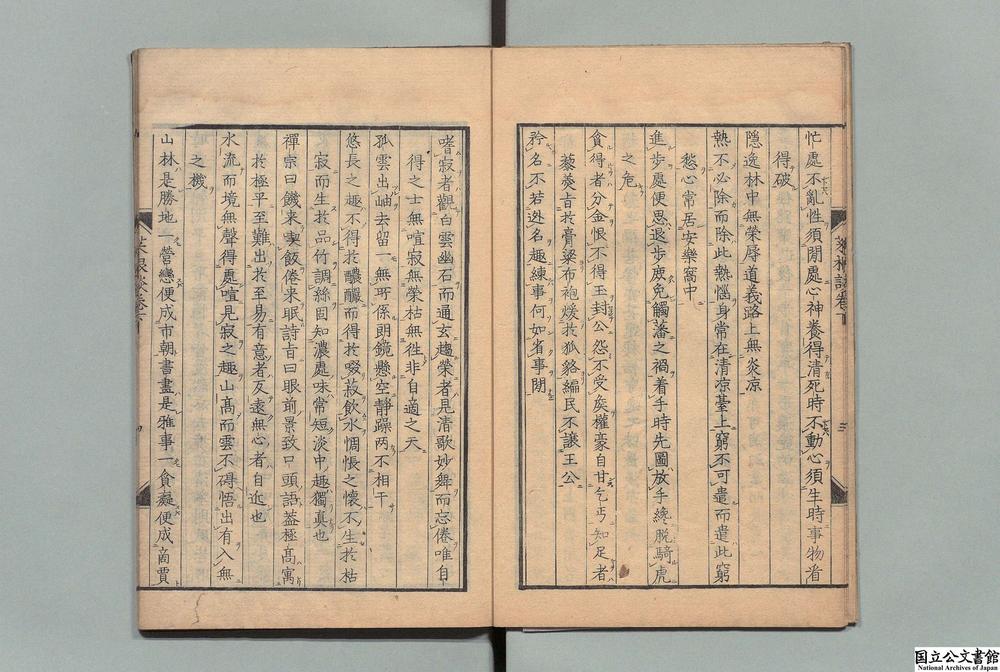 忙處不亂性須閒處心神養得清死時不動心須生時事物看
得破
隱逸林中無榮辱道義路上無炎凉
熱不必除而除此熱惱身常在清凉臺上窮不可遣而遣此窮
愁心常居安樂窩中
進步處便思退步庶免觸藩之禍着手時先圖放手纔脫騎虎
之危
貪得者分金恨不得玉封公怨不受矦權豪自甘乞丐知足者
藜羮旨於膏粱布袍煖於狐貉編民不讓王公
矜名不若逃名趣練事何如省事閒
嗜寂者觀白雲幽石而通玄趨榮者見清歌妙舞而忘倦唯自
得之士無喧寂無榮枯無徃非自適之天
孤雲出岫去留一無所係朗鏡懸空靜躁两不相干
悠長之趣不得於醲釅而得於啜菽飲水惆悵之懷不生於枯
寂而生於品竹調絲固知濃處味常短淡中趣獨真也
禪宗曰饑来喫飯倦来眠詩旨曰眼前景致口頭語葢極髙寓
於極平至難出於至易有意者反遠無心者自近也
水流而境無聲得處喧見寂之趣山髙而雲不碍悟出有入無
之機
山林是勝地一營戀便成市朝書畫是雅事一貪癡便成啇賈
菜根譚卷下
三
国立公文書館
National Archives of Japan